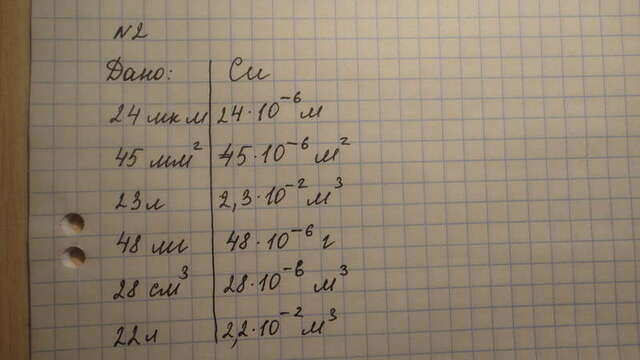 N2
Дано: Си
24 мкм 24·10⁻⁶ м
45 мм² 45·10⁻⁶ м²
23л 2,3·10⁻² м³
48 мг 48·10⁻⁶ г
28 см³ 28·10⁻⁶ м³
22л 2,2·10⁻² м³